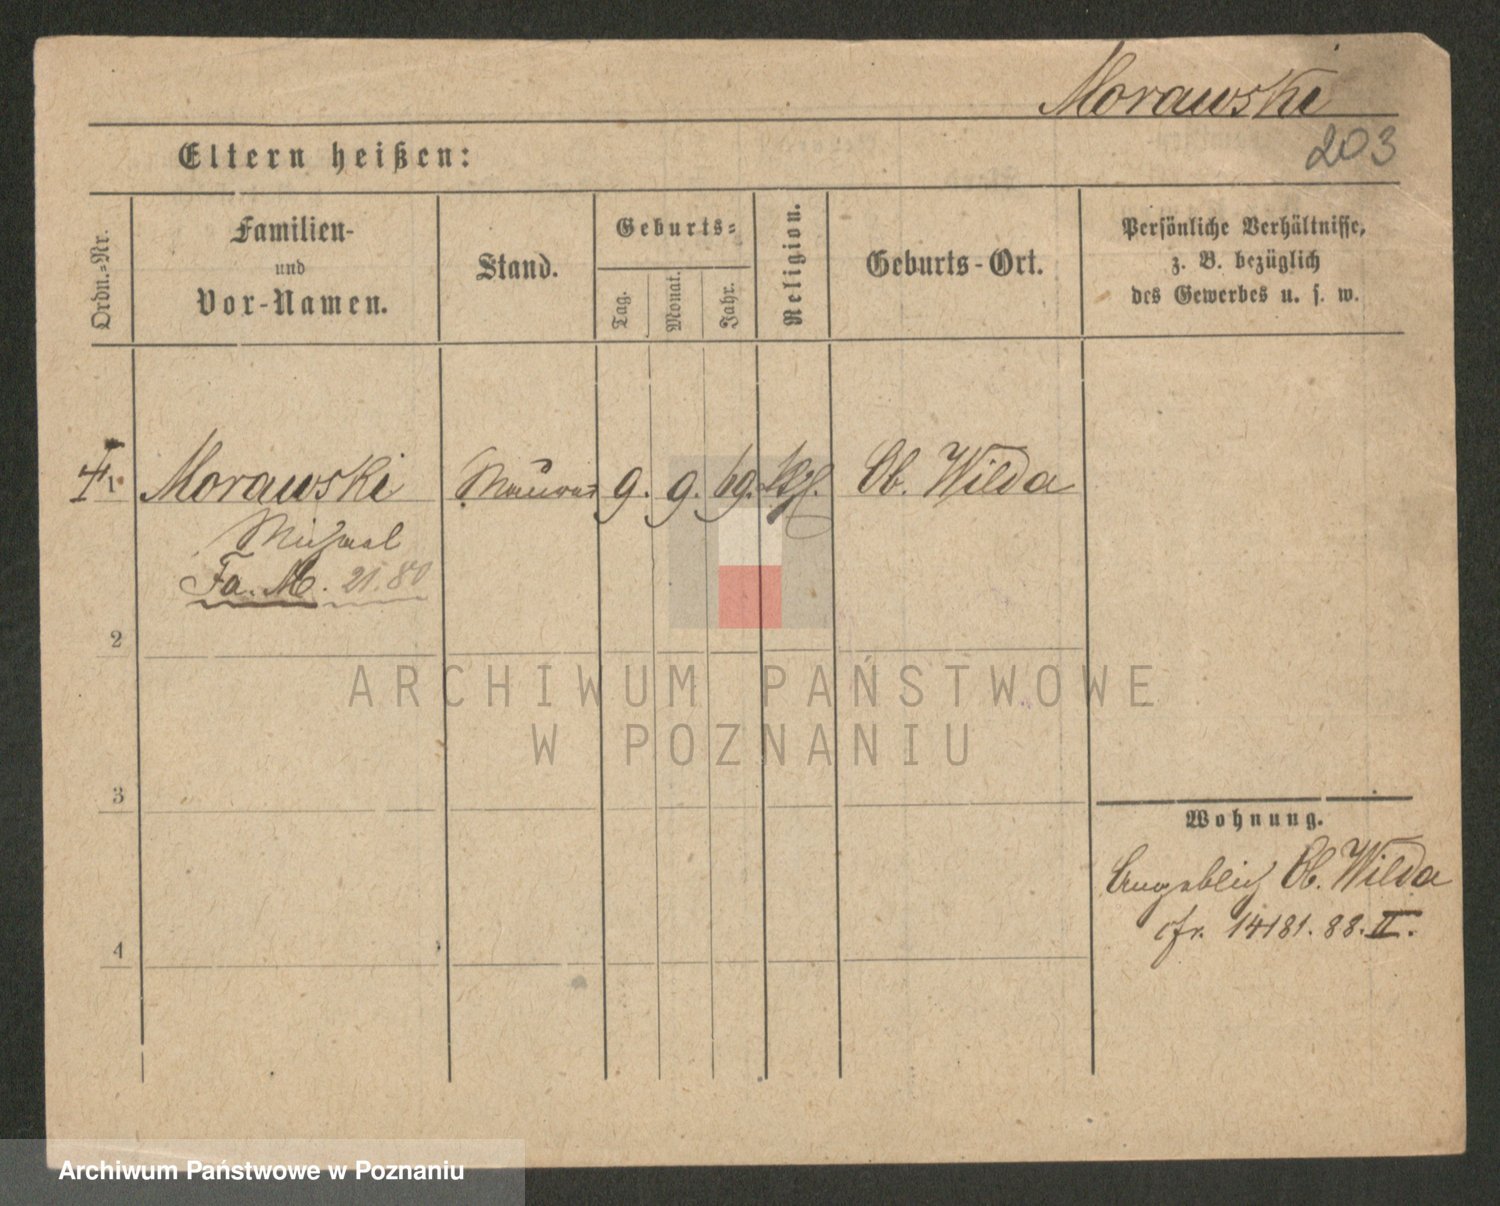 Morawski
203
Eltern heißen:
Ordn.=Nr.
Familien-
und
Vor-Namen.
Stand.
Geburts=
Tag.
Monat.
Jahr.
Religion.
Geburts-Ort.
Persönliche Verhältnisse,
z. B. bezüglich
des Gewerbes u. s. w.
1 Morawski Maurer 9. 9. 69. kath. Ob. Wilda
Michael
Fa. M. 21.80
2
3
4
Wohnung.
Angeblich Ob. Wilda
cfr. 14181. 88. II.
ARCHIWUM PAŃSTWOWE
W POZNANIU
Archiwum Państwowe w Poznaniu